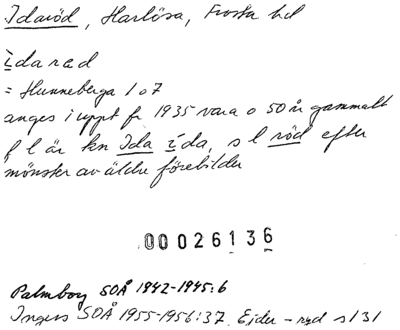 Idaröd, Harlösa, Frosta hd
ìdarœd
= Hunneberga 1 o 7
anges i uppt fr 1935 vara o 50 år gammalt
f l är kn Ida ída, s l röd efter
mönster av äldre förebilder
00026136
Palmborg SOÅ 1942-1945:6
Ingers SOÅ 1955-1956:37 Ejder - ryd s 131